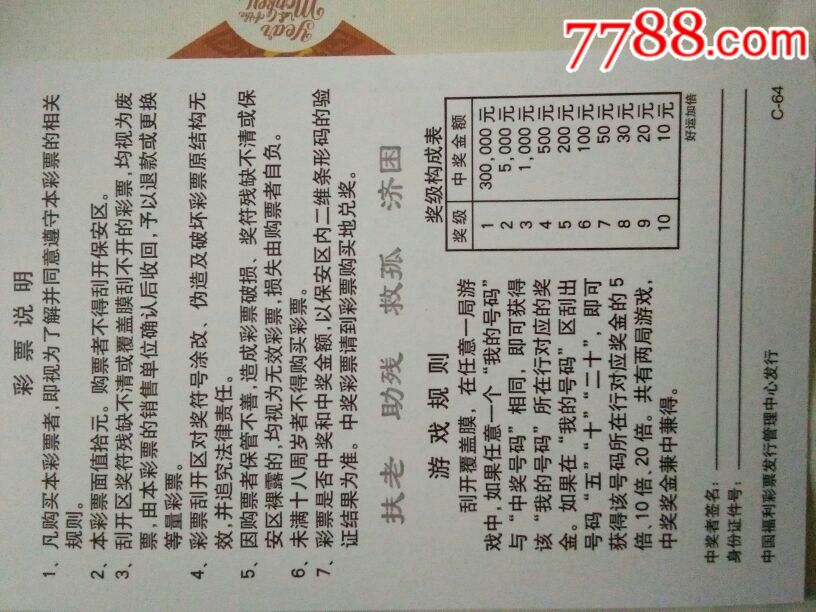 Year
of the
Monkey
7788.com
彩票说明
1、凡购买本彩票者，即视为了解并同意遵守本彩票的相关
规则。
2、本彩票面值拾元。购票者不得刮开保安区。
3、刮开区奖符残缺不清或覆盖膜刮不开的彩票，均视为废
票，由本彩票的销售单位确认后收回，予以退款或更换
等量彩票。
4、彩票刮开区对奖符号涂改、伪造及破坏彩票原结构无
效，并追究法律责任。
5、因购票者保管不善，造成彩票破损、奖符残缺不清或保
安区裸露的，均视为无效彩票，损失由购票者自负。
6、未满十八周岁者不得购买彩票。
7、彩票是否中奖和中奖金额，以保安区内二维条形码的验
证结果为准。中奖彩票请到彩票购买地兑奖。
扶老 助残 救孤 济困
游戏规则
刮开覆盖膜，在任意一局游
戏中，如果任意一个“我的号码”
与“中奖号码”相同，即可获得
该“我的号码”所在行对应的奖
金。如果在“我的号码”区刮出
号码“五”“十”“二十”，即可
获得该号码所在行对应奖金的5
倍、10倍、20倍。共有两局游戏，
中奖奖金兼中兼得。
奖级构成表
奖级 中奖金额
1 300,000元
2 5,000元
3 1,000元
4 500元
5 200元
6 100元
7 50元
8 30元
9 20元
10 10元
好运加倍
中奖者签名：
身份证件号：
中国福利彩票发行管理中心发行
C-64